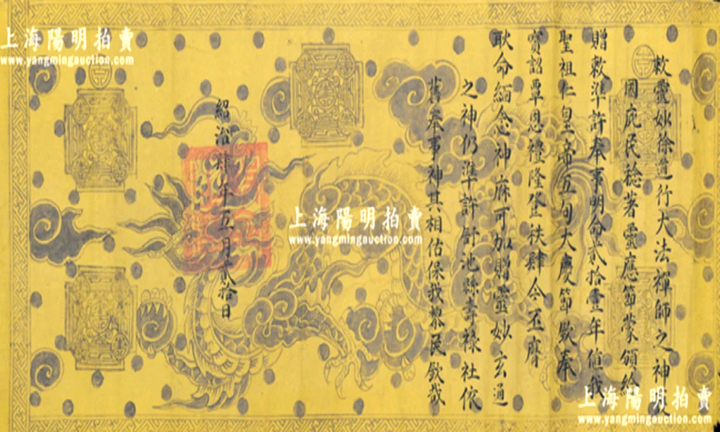 敕靈妙徐道行大法禪師之神
國庇民稔著靈應節蒙頒給
贈敕準許奉事明命貳拾壹年值我
聖祖仁皇帝五旬大慶節欽奉
寶詔覃恩禮隆登秩肆今丕膺
耿命緬念神庥可加贈靈妙玄通
之神仍準許舒池縣壽祿社依
舊奉事神其相佑保我黎民欽哉
紹治年五月貳拾日
上海陽明拍賣
www.yangmingauction.com
上海陽明拍賣
www.yangmingauction.com
上海陽明拍賣
www.yangmingauction.com
上海陽明拍賣
www.yangmingauction.com